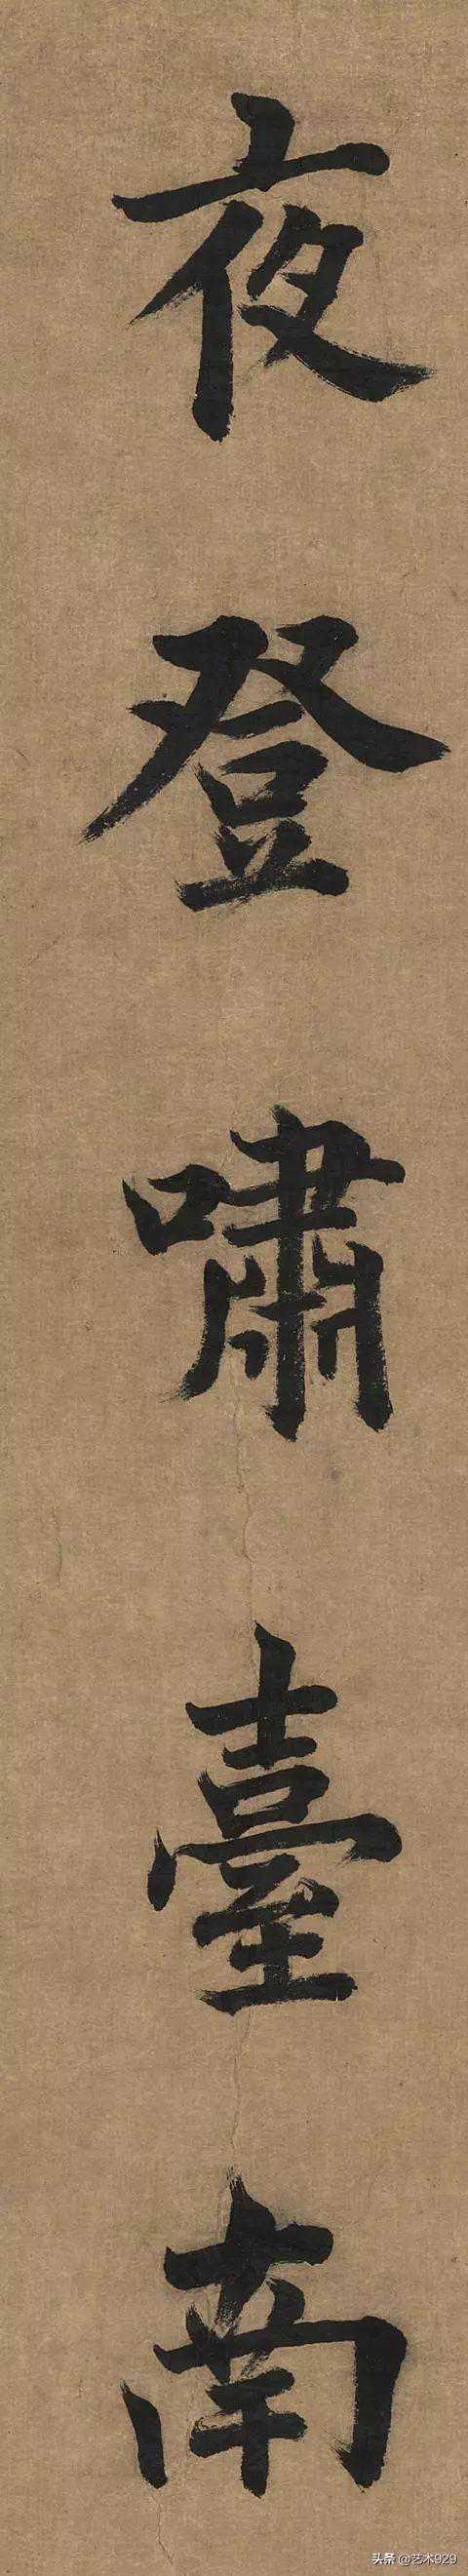 夜登嘯臺南
头条 @艺术929